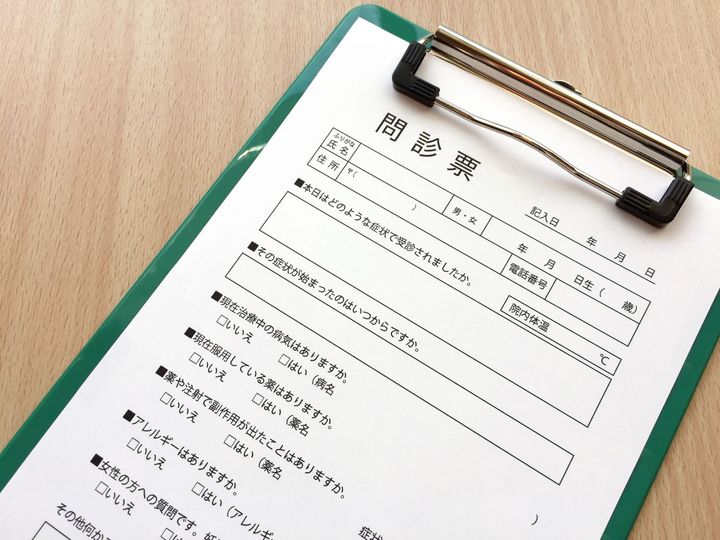 問診票
記入日 年 月 日
ふりがな
氏名 男・女 年 月 日生 ( 歳)
住所 〒( ) 電話番号
■本日はどのような症状で受診されましたか。 院内体温 ℃
■その症状が始まったのはいつからですか。
■現在治療中の病気はありますか。
□いいえ □はい (病名
■現在服用している薬はありますか。
□いいえ □はい (薬名
■薬や注射で副作用が出たことはありますか。
□いいえ □はい (薬名 )
■アレルギーはありますか。
□いいえ □はい (アレルギー 症状
■女性の方への質問です。
□いいえ □は
その他何か